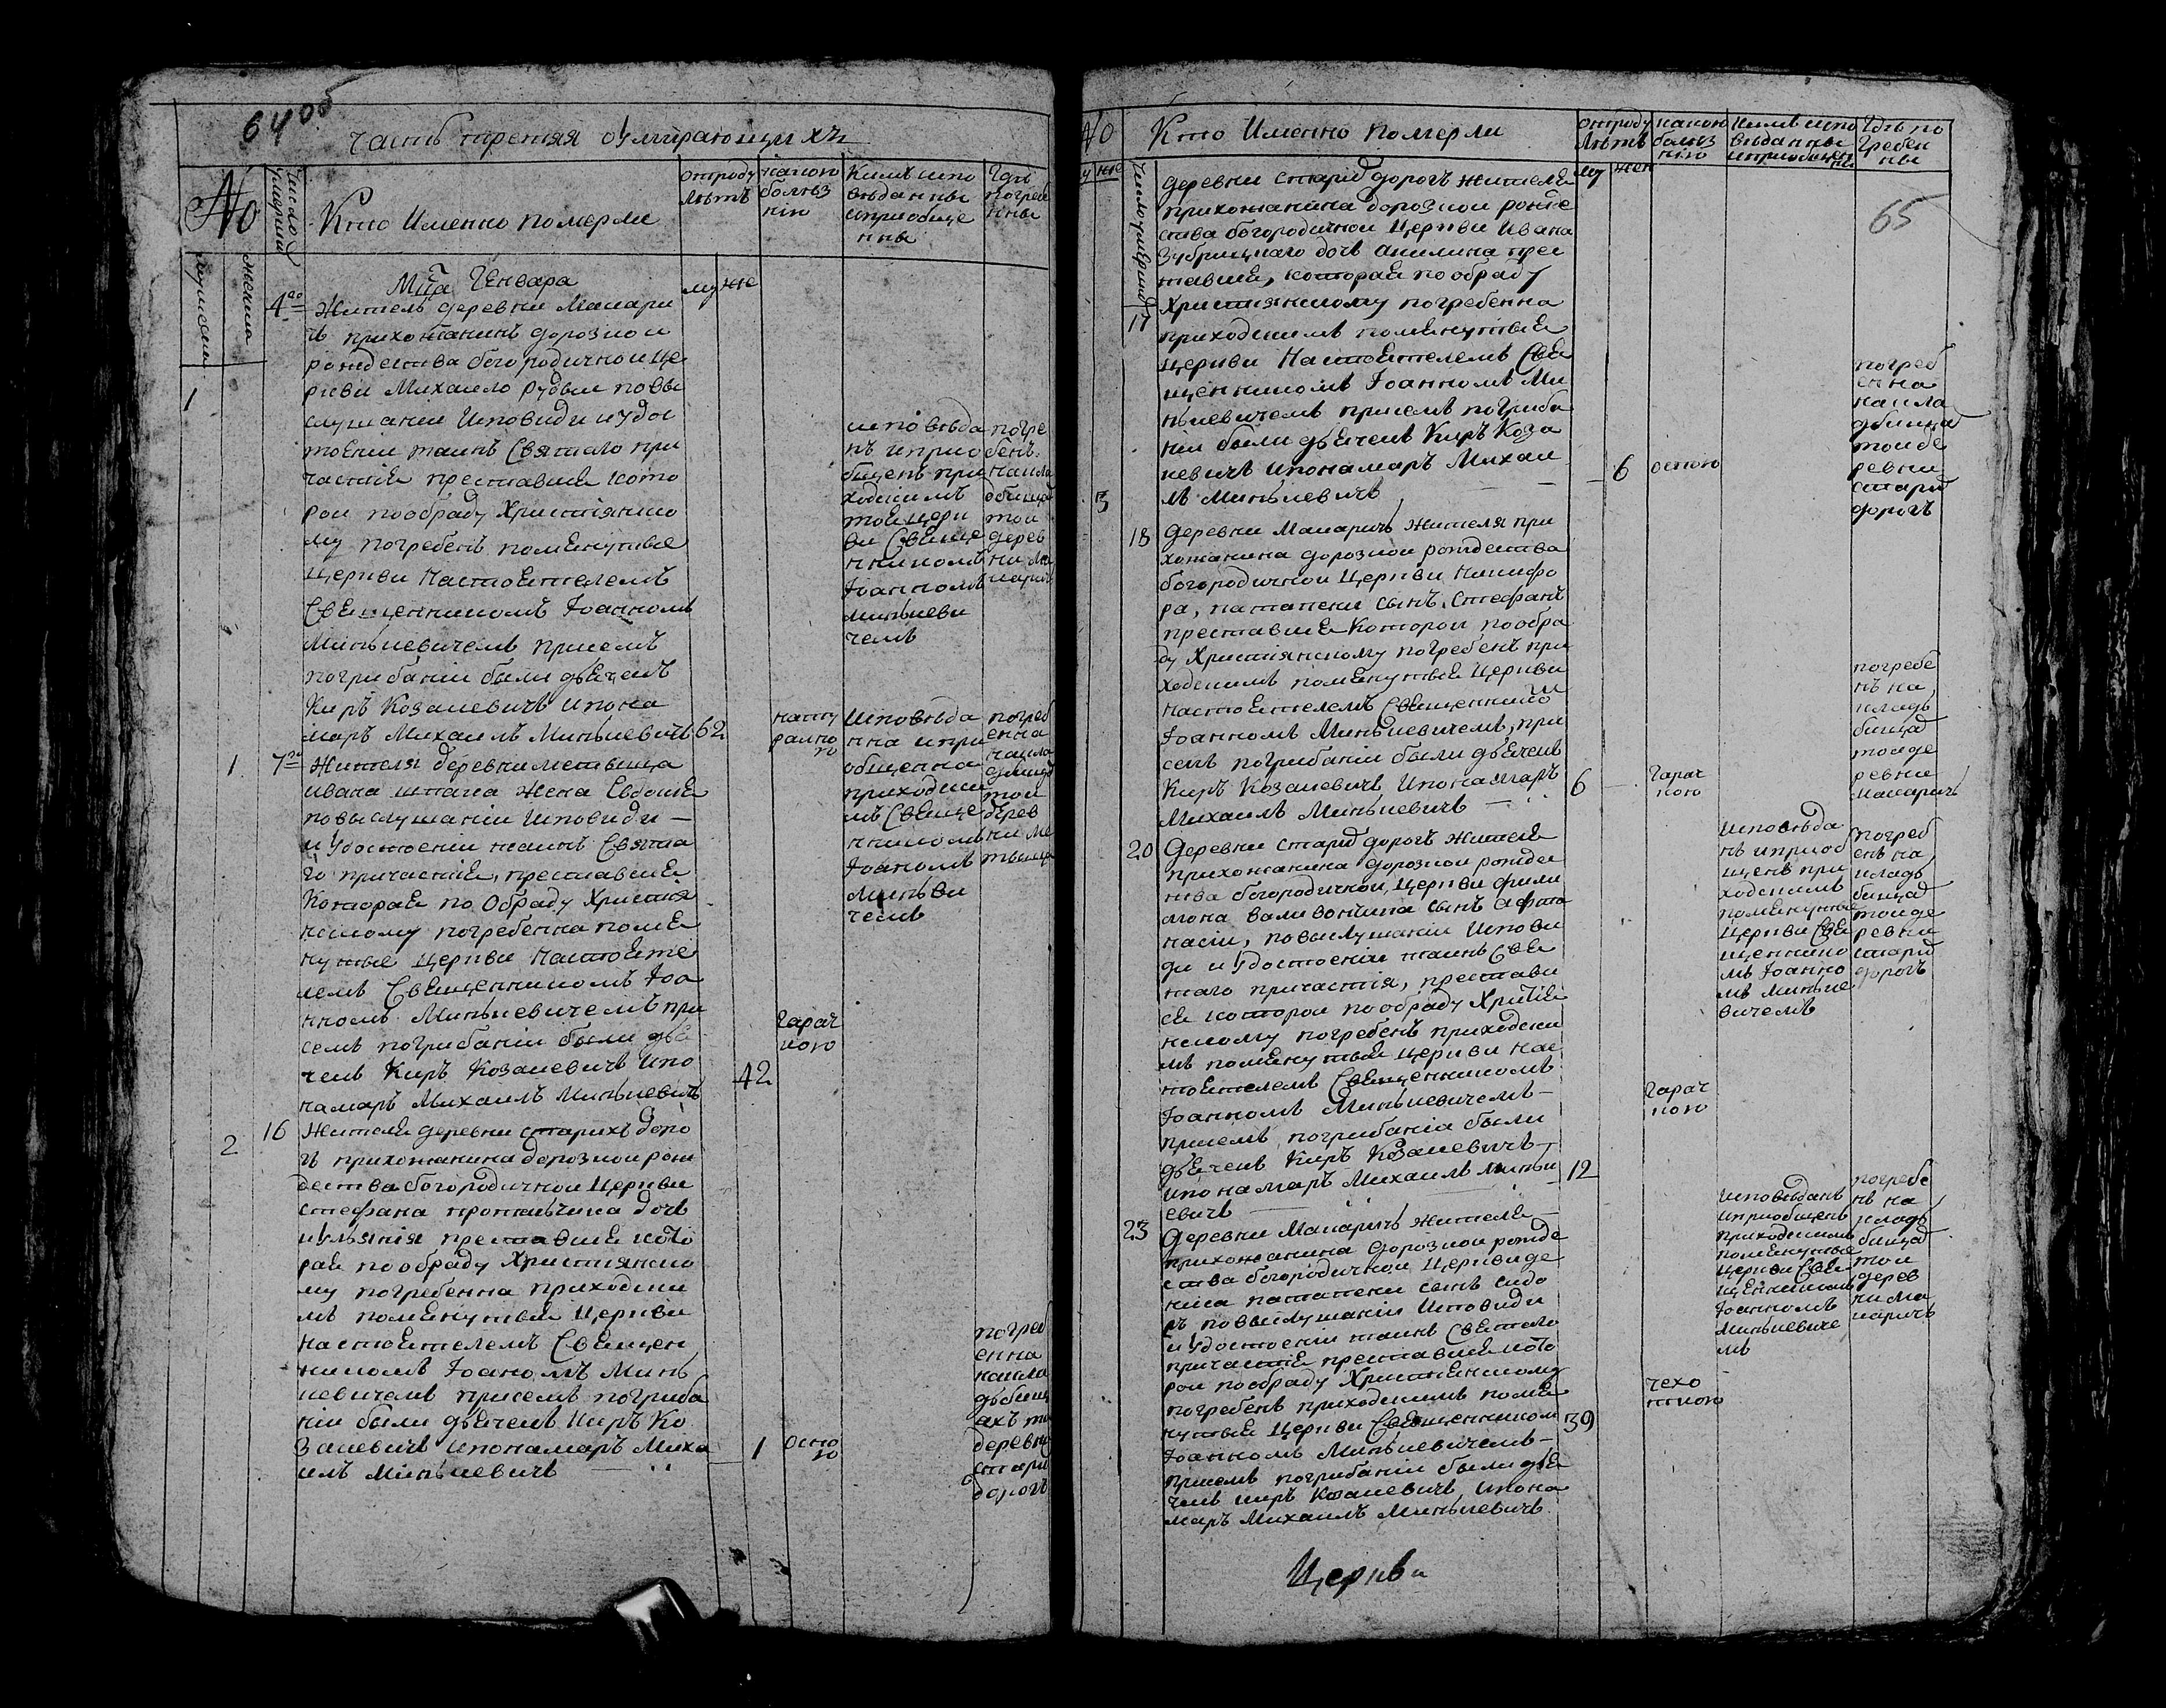 64об
часть третяя оумирающихъ
No
число умершихъ
Кто Именно померли
отроду
лѣтъ
какою
болѣз
нію
Кимъ испо
вѣданны
и приобще
нны
Где
погребе
нны
мужеска
женска
Мца Генваря
муж
же
1
4го
Житель деревни Макари
чъ прихожанинъ дорозкои
рождества богородичнои це
ркви Михаило Рудыи повы
слушании Исповиди иудос
тоении таинъ Святаго при
частія преставися кото
рои пообраду Христіянско
му погребенъ помянутыя
Церкви Настоятелемъ
Священникомъ Іоанномъ
Минькевичемъ присемъ
погрибаніи были дьячекъ
Киръ Козакевичъ ипона
маръ Михаилъ Минькевичъ
62
исповѣда
нъ иприо
бщенъ при
ходскимъ
тоя церк
ви Свяще
нникомъ
Іоанномъ
Минькеви
чемъ
погре
бенъ
накла
дбищѣ
тои
дерев
ни Ма
карич
1
7го
Жителя деревни
ивана шпака жена Евдокія
повыслушаніи Исповиди
иУдостоении таинъ Свята
го причастія, преставися
Которая по Обраду Христія
нскому погребенна помя
нутыя церкви Настояте
лемъ Священникомъ Іоа
нномъ Минькевичемъ при
семъ погрибаніи были дья
чекъ Киръ Козакевичъ ипо
намаръ Михаилъ Минькевичъ
42
нату
рално
ю
гарач
кою
Исповѣда
нна ипри
общенна
приходски
мъ Свяще
нникомъ
Іоаномъ
Миньки
чемъ
погреб
енна
накла
дбищѣ
тои
дерев
ни
2
16
Жителя деревни старихъ доро
гъ прихожанина дорозкои рож
дества богородичнои Церкви
стефана дочь
преставися кото
рая пообраду Христіянско
му погребенна приходски
мъ помянутыя Церкви
настоятелемъ Священ
никомъ Іоаномъ Минь
кевичемъ присемъ погриба
ніи были дьячекъ Киръ Ко
закевичъ ипонамаръ Миха
илъ Минькевичъ
1
оспо
ю
погреб
енна
накла
дбищ
ахъ то
деревни
стари
дорогъ
No
Кто Именно померли
отроду
Лѣтъ
какою
болѣз
нію
Кимъ испо
вѣданны
иприобщен
ны
Гдѣ по
гребен
ны
65
му
жен
число умершихъ
деревни старих дорогъ жителя
прихожанина дорозкои рожде
ства богородичнои Церкви Ивана
Зубрицкаго дочь Акилина прес
тавися, которая пообраду
Христіянскому погребенна
приходскимъ помянутыя
церкви Настоятелемъ Свя
щенникомъ Іоанномъ Ми
нькевичемъ присемъ погриба
ніи были дьячекъ Киръ Коза
кевичъ ипонамаръ Михаи
лъ Минькевичъ
17
3
6
оспою
погреб
енна
накла
дбищѣ
тои де
ревни
старих
дорогъ
18
деревни Макаричъ жителя при
хожанина дорозкои рождества
богородичнои Церкви Никифо
ра, патапеки сынъ Стефанъ
преставися Которои пообра
ду Христіянскому погребенъ при
ходскимъ помянутыя Церкви
настоятелемъ Священнико
Іоанномъ Минькевичемъ, при
семъ погрибаніи были дьячекъ
Киръ Козакевичъ Ипонамаръ
Михаилъ Минькевичъ
6
гарач
кою
погребе
нъ на
кладь
бищѣ
тои де
ревни
макаричъ
20
деревни старих дорогъ жителя
прихожанина дорозкои рождес
тва богородичнои, Церкви фили
мона сынъ Афана
насіи, повыслушаніи Испови
ди и Удостоеніи таинъ Свя
таго причастія, престави
ся которои пообраду Христія
нскому погребенъ приходски
мъ помянутыя церкви нас
тоятелемъ Священникомъ
Іоанномъ Минькевичемъ
присемъ погрибаніи были
дьячекъ Киръ Козакевичъ
ипонамаръ Михаилъ Миньк
евичъ
12
гарач
кою
исповѣда
нъ иприоб
щенъ при
ходскимъ
помянутыя
Церкви Свя
щеннико
мъ Іоанно
мъ Минке
вичемъ
погреб
енъ на
кладь
бищѣ
тои де
ревни
старих
дорогъ
23
деревни Макаричъ жителя
прихожанина дорозкои рожде
ства богородичнои Церкви де
ниса патапеки сынъ сидо
ръ повыслушаніи Исповиди
и Удостоеніи таинъ Святаго
причастія преставися кото
рои пообраду Християнскому
погребенъ приходскимъ помя
нутыя Церкви Священником
Іоанномъ Минькевичемъ
присемъ погрибаніи были дья
чекъ киръ Козакевичъ, ипона
маръ Михаилъ Минькевичъ
39
чехо
ткою
исповѣданъ
иприобщенъ
приходскимъ
помянутыя
церкви Свя
щенникомъ
Іоанномъ
Минькевиче
мъ
погребе
нъ на
кладь
бищѣ
тои
дерев
ни ма
каричъ
Церкви